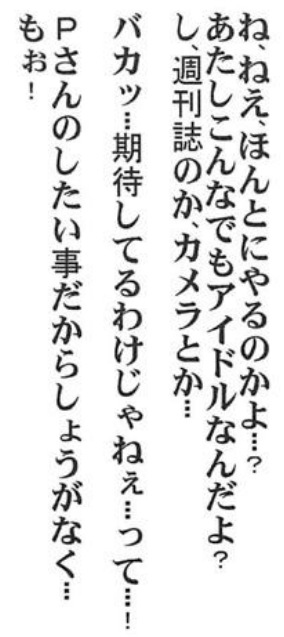 ね、ねえ、ほんとにやるのかよ…?
あたしこんなでもアイドルなんだよ?
し、週刊誌のか、カメラとか…
バカッ…期待してるわけじゃねぇ…って…!
Pさんのしたい事だからしょうがなく…
もぉ!